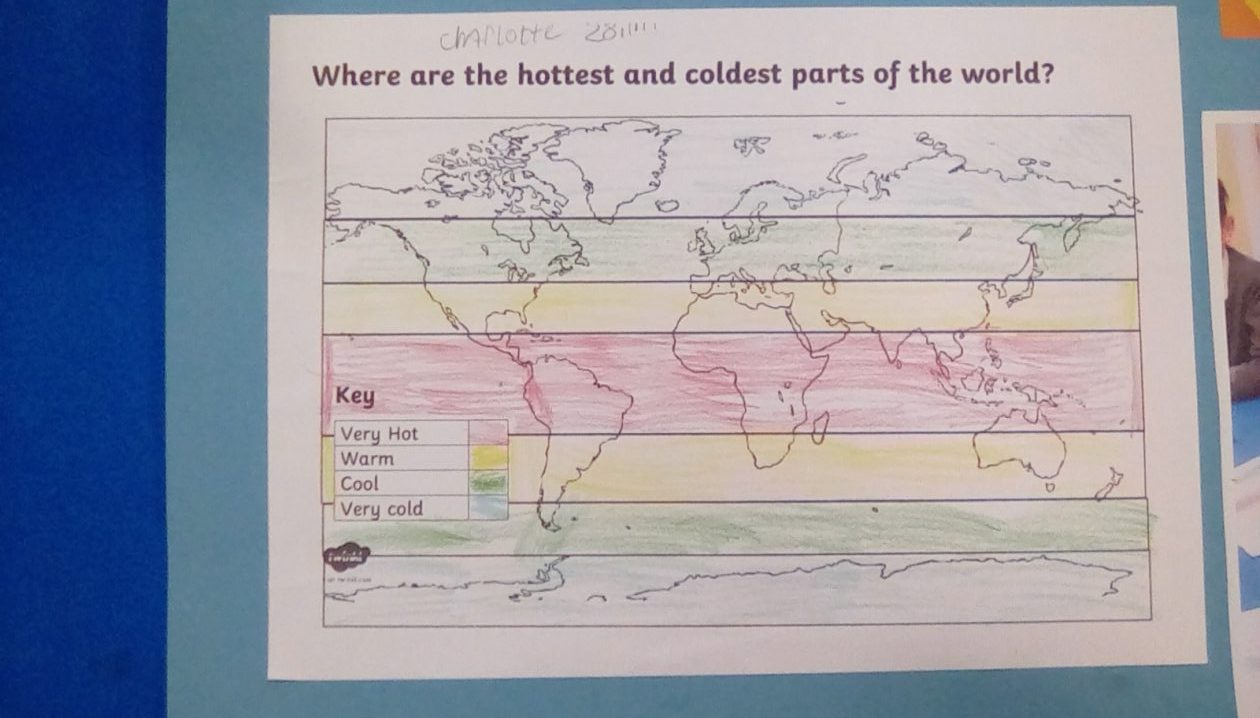 Charlotte
Where are the hottest and coldest parts of the world?
Key
Very Hot
Warm
Cool
Very cold
twinkl